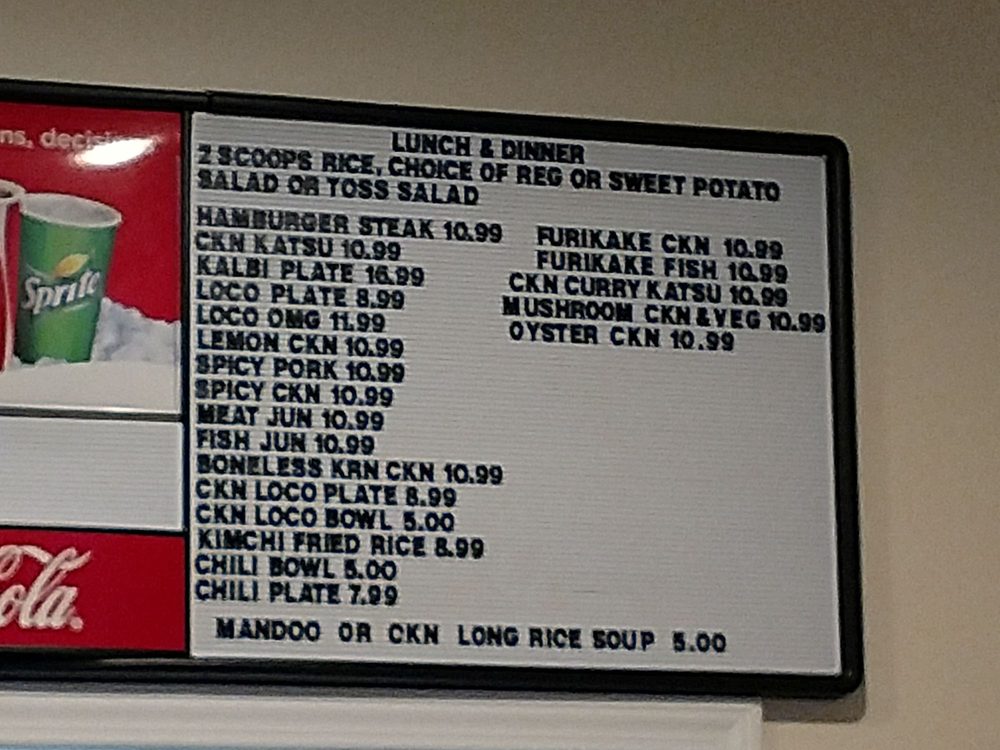 ns,
Sprite
Cola
LUNCH & DINNER
2 SCOOPS RICE, CHOICE OF REG OR SWEET POTATO
SALAD OR TOSS SALAD
HAMBURGER STEAK 10.99
CKN KATSU 10.99
KALBI PLATE 16.99
LOCO PLATE 8.99
LOCO OMG 11.99
LEMON CKN 10.99
SPICY PORK 10.99
SPICY CKN 10.99
MEAT JUN 10.99
FISH JUN 10.99
BONELESS KRN CKN 10.99
CKN LOCO PLATE 8.99
CKN LOCO BOWL 5.00
KIMCHI FRIED RICE 8.99
CHILI BOWL 5.00
CHILI PLATE 7.99
FURIKAKE CKN 10.99
FURIKAKE FISH 10.99
CKN CURRY KATSU 10.99
MUSHROOM CKN & VEG 10.99
OYSTER CKN 10.99
MANDOO OR CKN LONG RICE SOUP 5.00